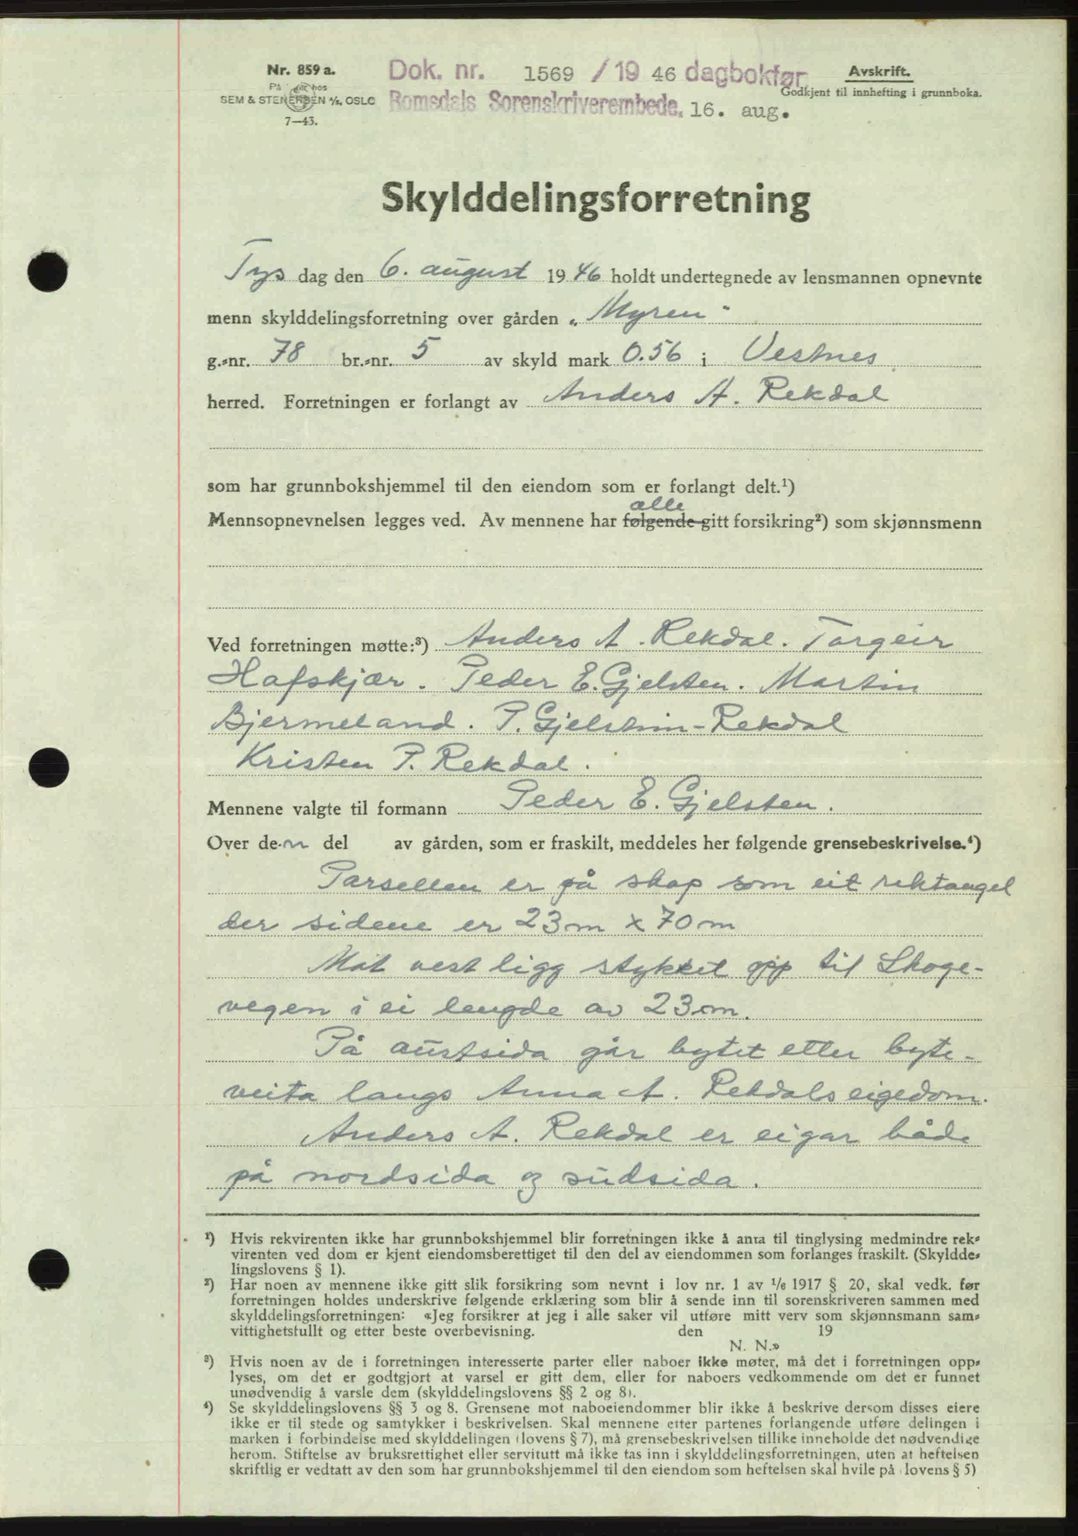 Nr. 859 a.
På lager hos
SEM & STENERSEN A/S, OSLO
7—43.
Dok. nr. 1569 / 19 46 dagbokfør
Romsdals Sorenskriverembede, 16. aug.
Avskrift.
Godkjent til innhefting i grunnboka.
Skylddelingsforretning
Tys dag den 6. august 19 46 holdt undertegnede av lensmannen opnevnte
menn skylddelingsforretning over gården „Myren"
g.-nr. 78 br.-nr. 5 av skyld mark 0.56 i Vestnes
herred. Forretningen er forlangt av Anders A. Rekdal
som har grunnbokshjemmel til den eiendom som er forlangt delt.¹)
alle
Mennsopnevnelsen legges ved. Av mennene har følgende gitt forsikring²) som skjønnsmenn
Ved forretningen møtte:³) Anders A. Rekdal. Torgeir
Hafskjær. Peder E. Gjelsten. Martin
Bjermeland. P. Gjelstin-Rekdal
Kristen P. Rekdal.
Mennene valgte til formann Peder E. Gjelsten.
Over de-n del av gården, som er fraskilt, meddeles her følgende grensebeskrivelse.⁴)
Parsellen er på skap som eit rektangel
der sidene er 23m x 70m
Mot vest ligg stykket opp til Skoge-
vegen i ei lengde av 23m.
På austsida går bytet etter byte-
veita langs Anna A. Rekdals eigedom.
Anders A. Rekdal er eigar både
på nordsida og sudsida.
¹) Hvis rekvirenten ikke har grunnbokshjemmel blir forretningen ikke å anta til tinglysing medmindre rek-
virenten ved dom er kjent eiendomsberettiget til den del av eiendommen som forlanges fraskilt. (Skyldde-
lingslovens § 1).
²) Har noen av mennene ikke gitt slik forsikring som nevnt i lov nr. 1 av ¹/₆ 1917 § 20, skal vedk. før
forretningen holdes underskrive følgende erklæring som blir å sende inn til sorenskriveren sammen med
skylddelingsforretningen: «Jeg forsikrer at jeg i alle saker vil utføre mitt verv som skjønnsmann sam-
vittighetsfullt og etter beste overbevisning. den 19
N. N.»
³) Hvis noen av de i forretningen interesserte parter eller naboer ikke møter, må det i forretningen opp-
lyses, om det er godtgjort at varsel er gitt dem, eller for naboers vedkommende om det er funnet
unødvendig å varsle dem (skylddelingslovens §§ 2 og 8).
⁴) Se skylddelingslovens §§ 3 og 8. Grensene mot naboeiendommer blir ikke å beskrive dersom disses eiere
ikke er til stede og samtykker i beskrivelsen. Skal mennene etter partenes forlangende utføre delingen i
marken i forbindelse med skylddelingen (lovens § 7), må grensebeskrivelsen tillike inneholde det nødvendige
herom. Stiftelse av bruksrettighet eller servitutt må ikke tas inn i skylddelingsforretningen, uten at heftelsen
skriftlig er vedtatt av den som har grunnbokshjemmel til den eiendom som heftelsen skal hvile på (lovens § 5)